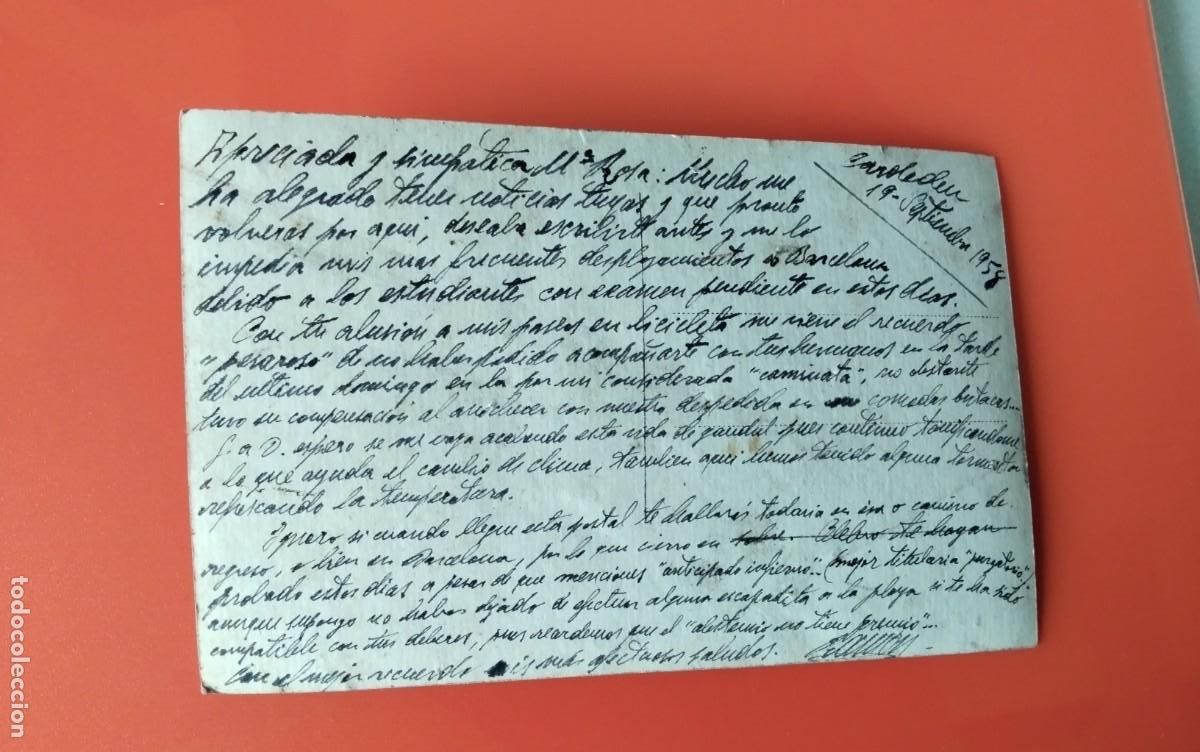 Apreciada y simpática Mª Rosa: Mucho me
ha alegrado tener noticias tuyas y que pronto
volverás por aqui, deseaba escribirte antes y me lo
impedia mis mas frecuentes desplazamientos a Barcelona
debido a los estudiantes con examen pendiente en estos dias.
Con tu alusión a mis paseos en bicicleta me viene el recuerdo
"pesaroso" de no haber podido acompañarte con tus hermanos en la tarde
del ultimo domingo en la por mi considerada "caminata", no obstante
tuvo su compensación al anochecer con nuestra despedida en comodas butacas...
G. a D. espero se me vaya acabando esta vida de gandul pues continuo
a lo que ayuda el cambio de clima, tambien aqui hemos tenido alguna tormenta
refrescando la temperatura.
Ignoro si cuando llegue esta postal te hallarás todavia en esa o camino de
regreso, o bien en Barcelona, por lo que cierro en sobre. te hayan
probado estos dias a pesar de que menciones "anticipado infierno".. (mejor titularia "purgatorio")
aunque supongo no habrás dejado de efectuar alguna escapadita a la playa si te ha sido
compatible con tus deberes, pues recordemos que el "abstemio no tiene premio"...
Con el mejor recuerdo mis más afectuosos saludos.
Cardedeu
19- Septiembre 1958
todocoleccion